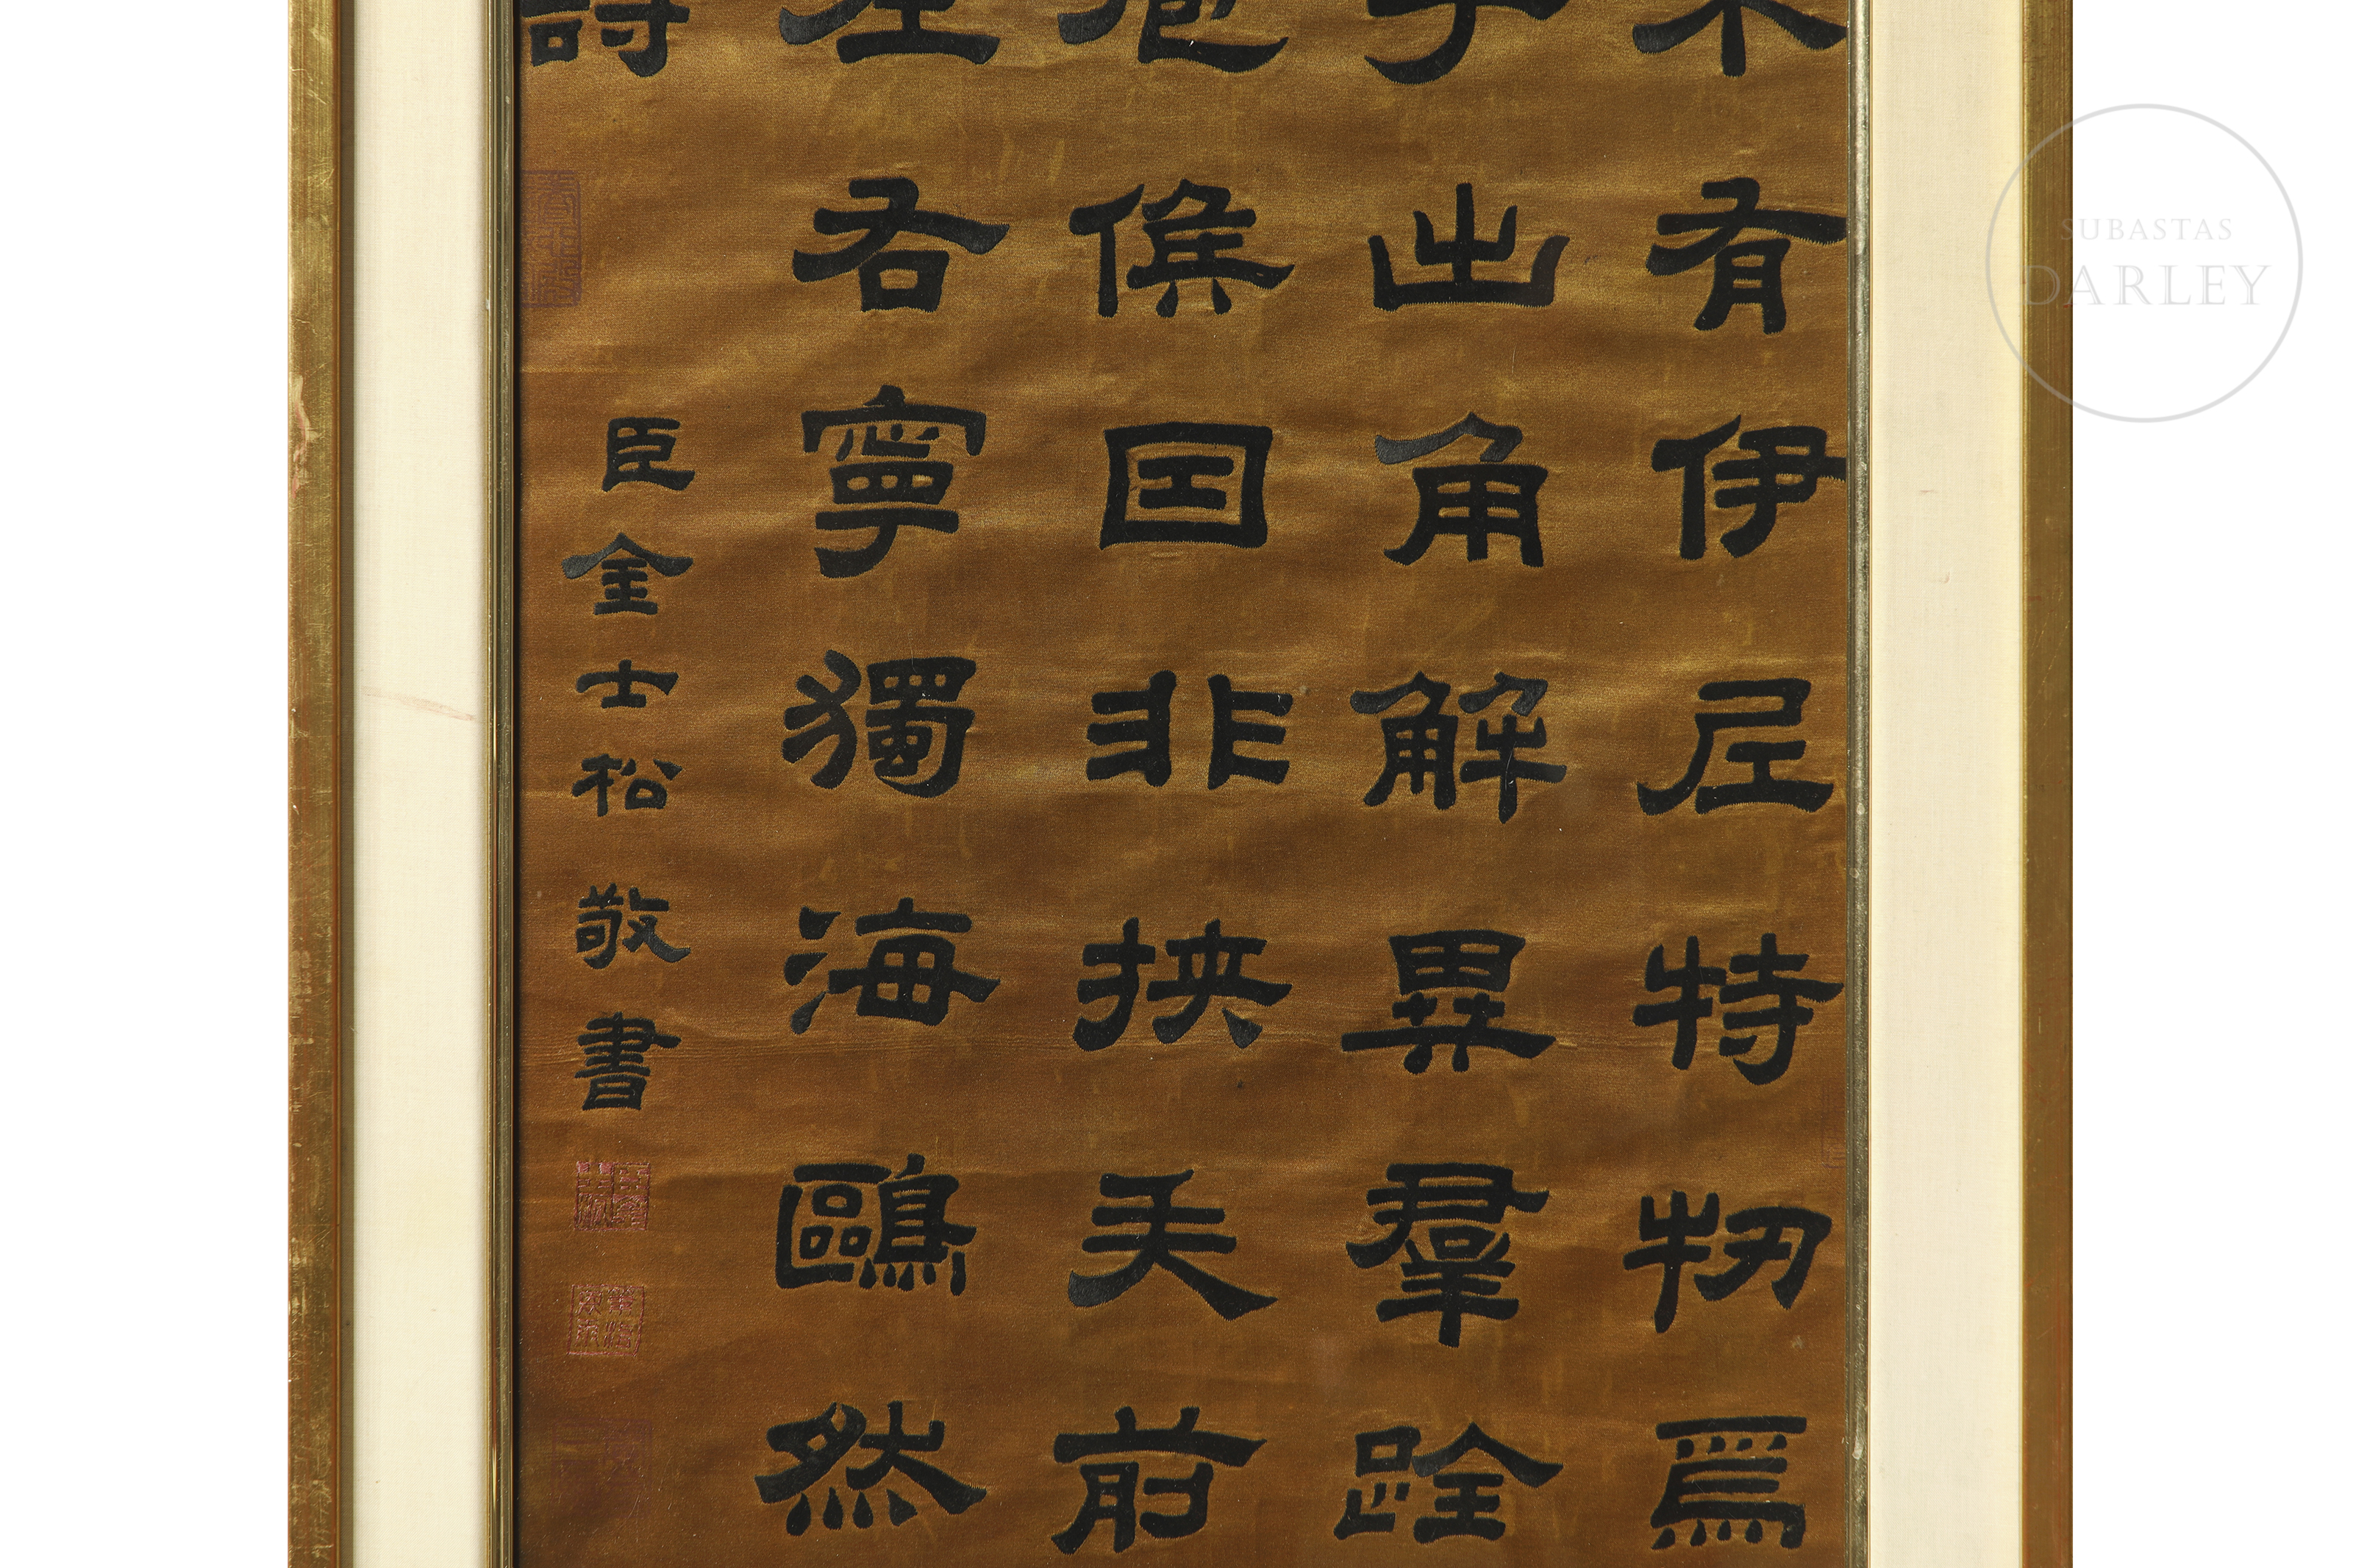 有伊尼特牣爲
出角解異羣跧
侯国非挾矢前
左右寧獨海鷗然
詩
臣金士松敬書
SUBASTAS
DARLEY